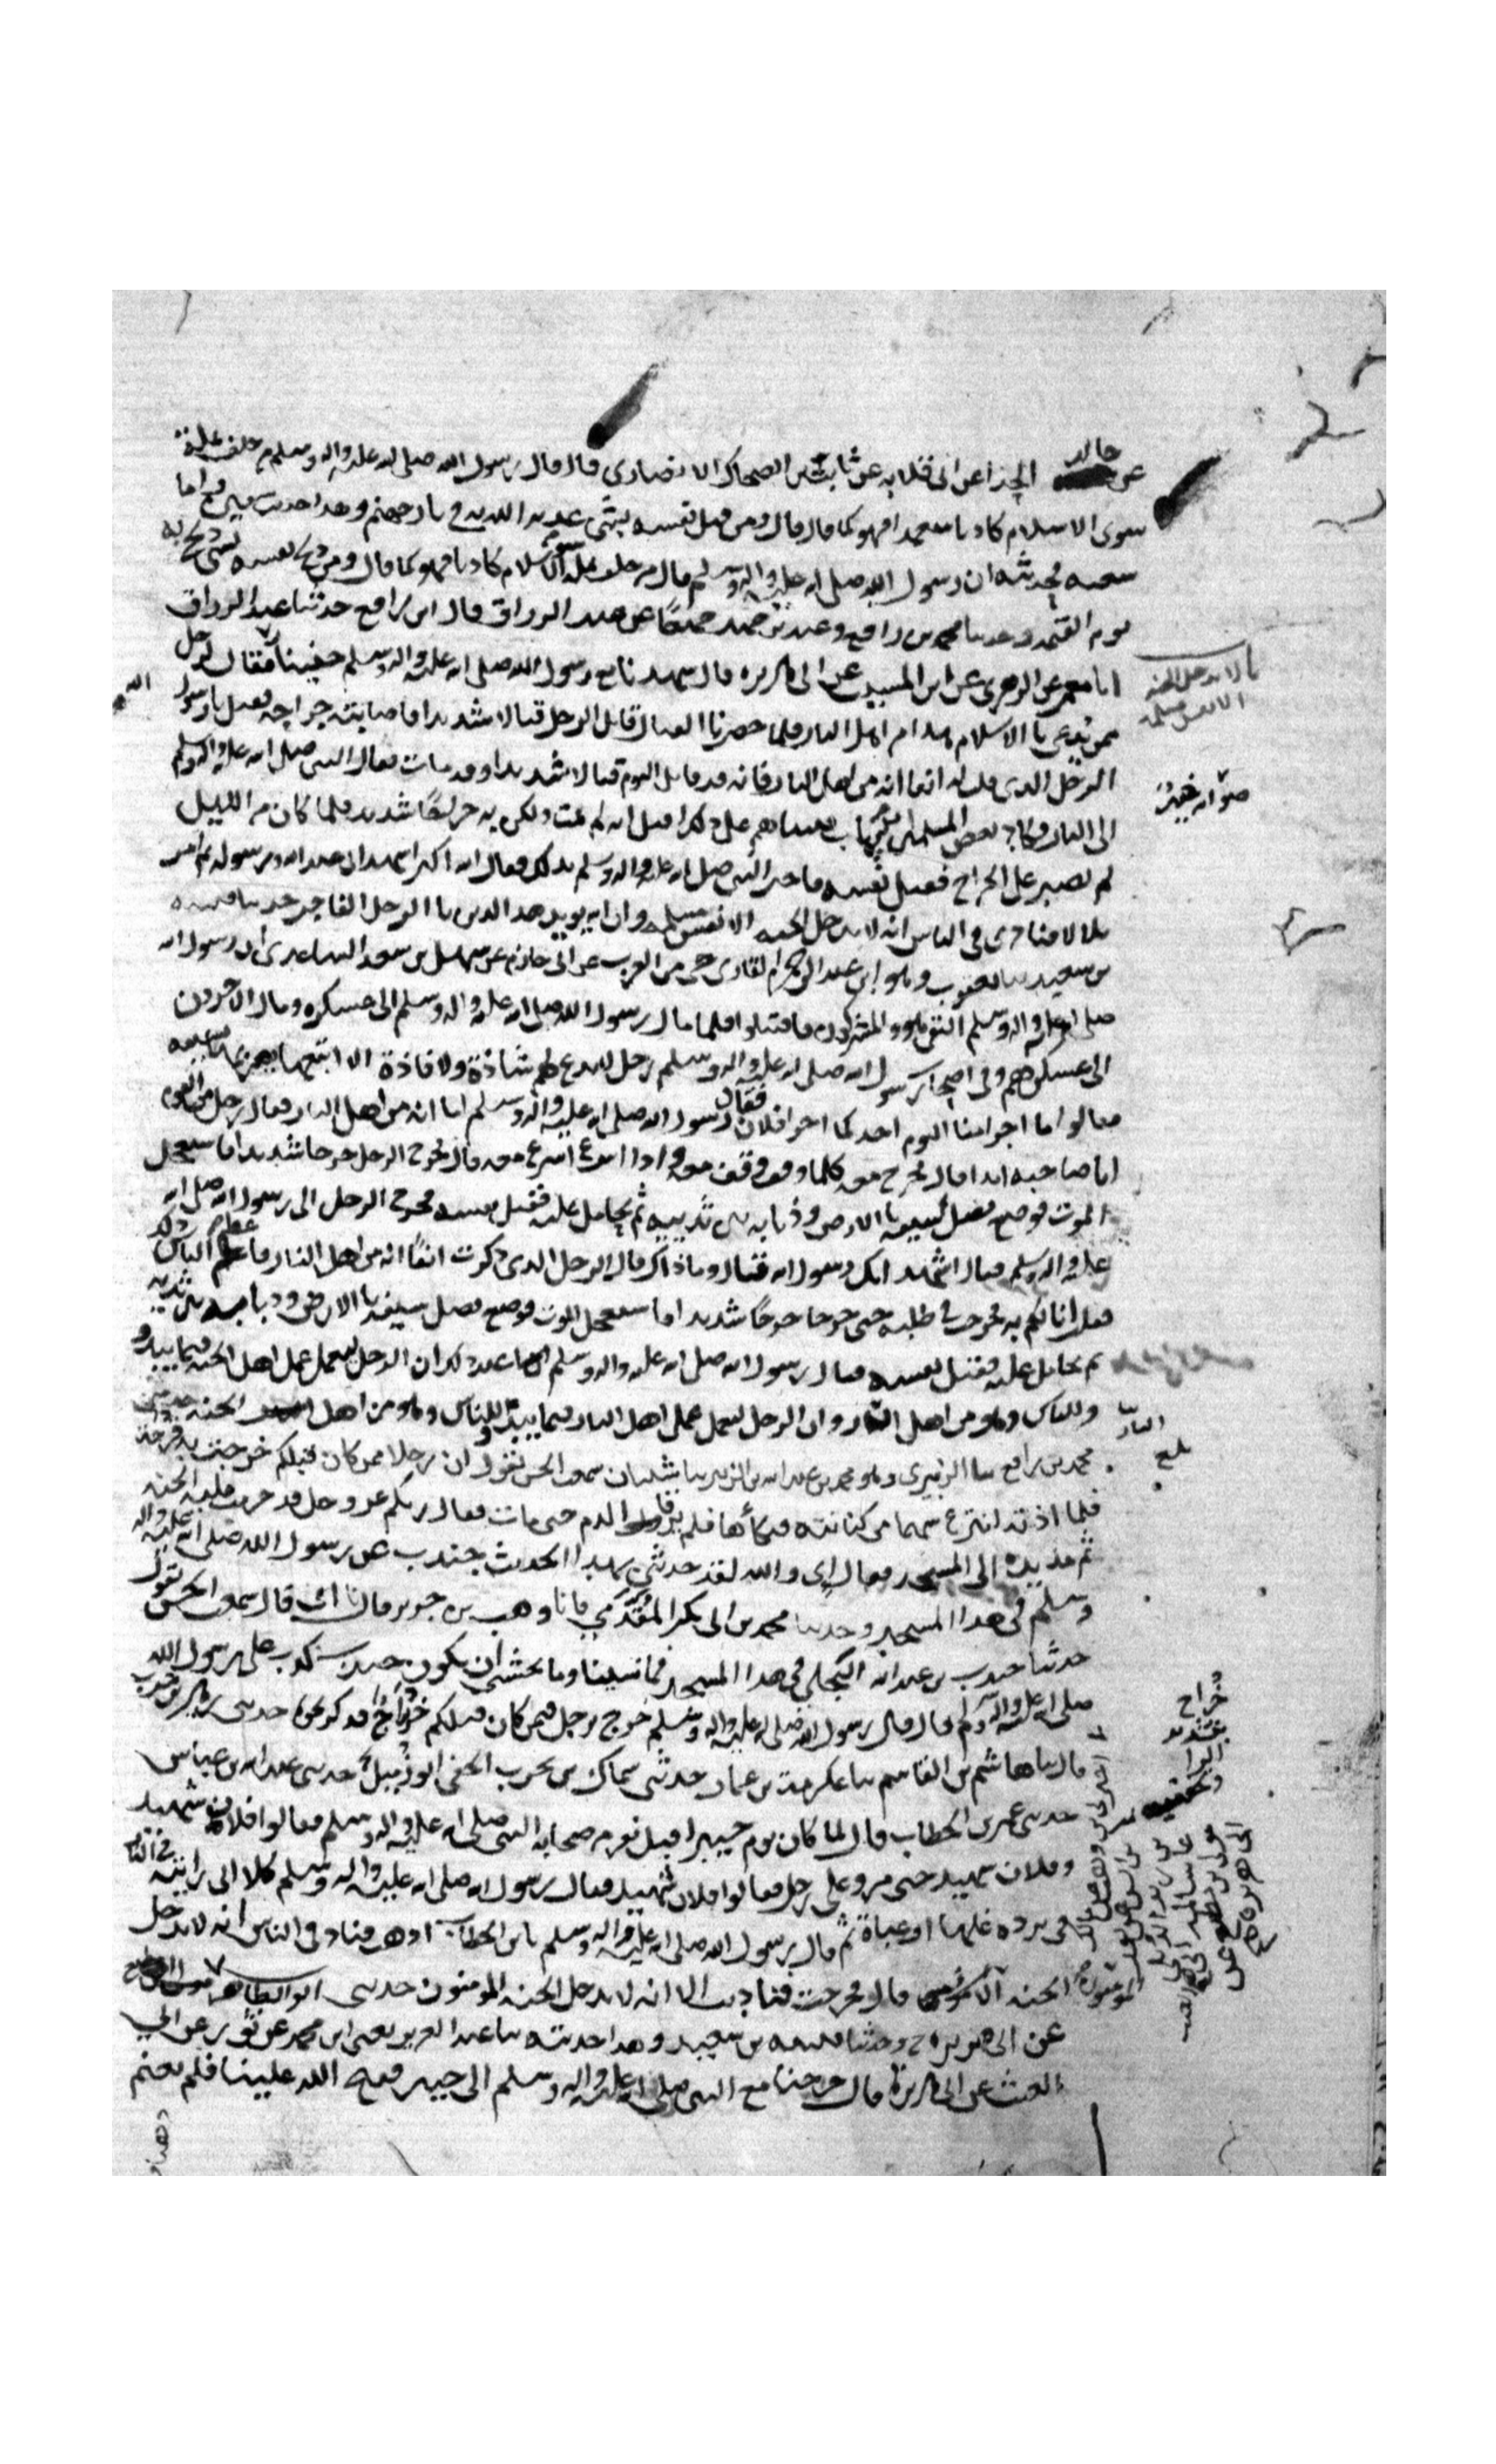 عن خالد الحذا عن ابى قلابه عن ثابت بن الضحاك الانصارى قال قال رسول الله صلى الله عليه واله وسلم من حلف بملة
سوى الاسلام كاذبا متعمدا فهو كما قال قال ومن قتل نفسه بشى عذبه الله به فى نار جهنم وهذا حديث سفين واما
شعبه فحديثه ان رسول الله صلى الله عليه واله وسلم قال من حلف بملة سوى الاسلام كاذبا فهو كما قال ومن ذبح نفسه بشى ذبح به
يوم القيمه وحدثنا محمد بن رافع وعبد بن حميد جميعًا عن عبد الرزاق قال ابن رافع حدثنا عبد الرزاق
انا معمر عن الزهرى عن ابن المسيب عن ابى هريره قال شهدنا مع رسول الله صلى الله عليه واله وسلم حنينا فقال لرجل
ممن يُدعى بالاسلام هذا من اهل النار فلما حضرنا القتال قاتل الرجل قتالا شديدا فاصابته جراحه فقيل يا رسول الله
الرجل الذى قلت له انفا انه من اهل النار فانه قد قاتل اليوم قتالا شديدا وقد مات فقال النبى صلى الله عليه واله وسلم
الى النار فكاد بعض المسلمين ان يرتاب فبينما هم على ذلك اذ قيل انه لم يمت ولكن به جراحًا شديدا فلما كان من الليل
لم يصبر على الجراح فقتل نفسه فاخبر النبى صلى الله عليه واله وسلم بذلك فقال الله اكبر اشهد انى عبد الله ورسوله ثم امر
بلالا فنادى فى الناس انه لا يدخل الجنه الا نفس مسلمه وان الله يويد هذا الدين بالرجل الفاجر حدثنا قتيبه
بن سعيد ثنا يعقوب وهو ابن عبد الرحمن القارى حى من العرب عن ابى حازم عن سهل بن سعد الساعدى ان رسول الله
صلى الله عليه واله وسلم التقى هو والمشركون فاقتتلوا فلما مال رسول الله صلى الله عليه واله وسلم الى عسكره ومال الاخرون
الى عسكرهم وفى اصحاب رسول الله صلى الله عليه واله وسلم رجل لا يدع لهم شاذة ولا فاذة الا اتبعها يضربها بسيفه
فقالوا ما اجزا منا اليوم احد كما اجزا فلان فقال رسول الله صلى الله عليه واله وسلم اما انه من اهل النار فقال رجل من القوم
انا صاحبه ابدا قال فخرج معه كلما وقف وقف معه واذا اسرع اسرع معه قال فجرح الرجل جرحا شديدا فاستعجل
الموت فوضع نصل سيفه بالارض وذبابه بين ثدييه ثم تحامل عليه فقتل نفسه فخرج الرجل الى رسول الله صلى الله
عليه واله وسلم فقال اشهد انك رسول الله فقال وما ذاك قال الرجل الذى ذكرت انفًا انه من اهل النار فاعظم الناس ذلك
فقلت انا لكم به فخرجت فى طلبه حتى جرح جرحًا شديدا فاستعجل الموت فوضع نصل سيفه بالارض وذبابه بين ثدييه
ثم تحامل عليه فقتل نفسه فقال رسول الله صلى الله عليه واله وسلم عند ذلك ان الرجل ليعمل عمل اهل الجنه فيما يبدو
للناس وهو من اهل النار وان الرجل ليعمل عمل اهل النار فيما يبدو للناس وهو من اهل الجنه حدثنى
محمد بن رافع ثنا الزبيرى وهو محمد بن عبد الله بن الزبير ثنا شيبان سمعت الحسن يقول ان رجلا ممن كان قبلكم خرجت به قرحة
فلما اذته انتزع سهما من كنانته فنكأها فلم يرقا الدم حتى مات فقال ربكم عز وجل قد حرمت عليه الجنه
ثم مد يده الى المسجد فقال اى والله لقد حدثنى بهذا الحديث جندب عن رسول الله صلى الله عليه واله
وسلم فى هذا المسجد وحدثنا محمد بن ابى بكر المُقَدَّمى قال نا وهب بن جرير قال نا ابى قال سمعت الحسن يقول
حدثنا جندب بن عبد الله البجلى فى هذا المسجد فما نسينا وما نخشى ان يكون جندب كذب على رسول الله
صلى الله عليه واله وسلم قال قال رسول الله صلى الله عليه واله وسلم خرج برجل فيمن كان قبلكم خُراج فذكر نحوه حدثنى زهير بن حرب
قال ثنا هاشم بن القاسم ثنا عكرمة بن عمار حدثنى سماك بن حرب الحنفى ابو زميل حدثنى عبد الله بن عباس
حدثنى عمر بن الخطاب قال لما كان يوم خيبر اقبل نفر من صحابه النبى صلى الله عليه واله وسلم فقالوا فلان شهيد
وفلان شهيد حتى مروا على رجل فقالوا فلان شهيد فقال رسول الله صلى الله عليه واله وسلم كلا انى رايته فى النار
فى برده غلها او عباة ثم قال رسول الله صلى الله عليه واله وسلم يابن الخطاب اذهب فناد فى الناس انه لا يدخل
الجنه الا المومنون قال فخرجت فناديت الا انه لا يدخل الجنه الا المومنون حدثنى ابو الطاهر
عن ابى هريره ح وحدثنا قتيبه بن سعيد وهذا حديثه ثنا عبد العزيز يعنى ابن محمد عن ثور عن ابى
الغيث عن ابى هريرة قال خرجنا مع النبى صلى الله عليه واله وسلم الى خيبر ففتح الله علينا فلم نغنم
لا يدخل الجنه
الا نفس مسلمه
صوابه خيبر
بلغ
خراج
بتشديد
الرا
وتخفيفه